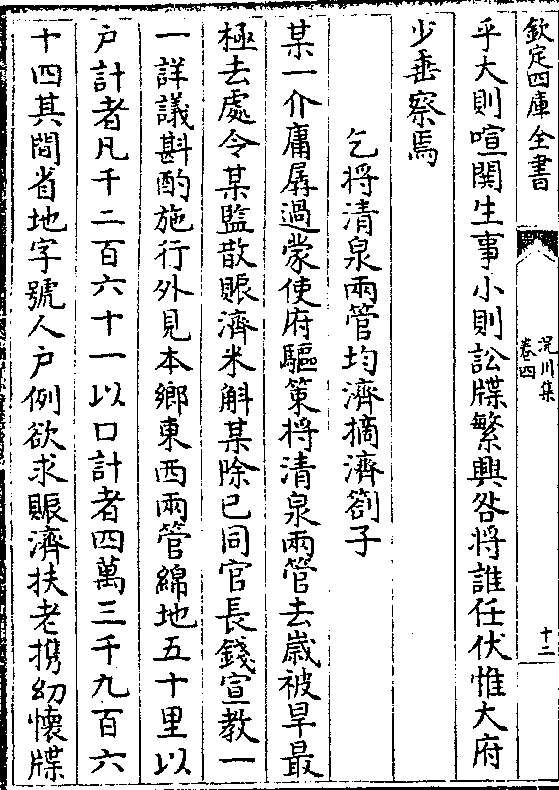 欽定四庫全書
卷四
洺川集
十二
乎大則喧鬨生事小則訟牒繁興咎將誰任伏惟大府
少垂察焉
乞將清泉兩管均濟摘濟劄子
某一介庸孱過蒙使府驅策將清泉兩管去歲被旱最
極去處令某監散賑濟米斛某除已同官長錢宣教一
一詳議斟酌施行外見本鄉東西兩管綿地五十里以
户計者凡千二百六十一以口計者四萬三千九百六
十四其間省地字號人户例欲求賑濟扶老擕幼懷牒